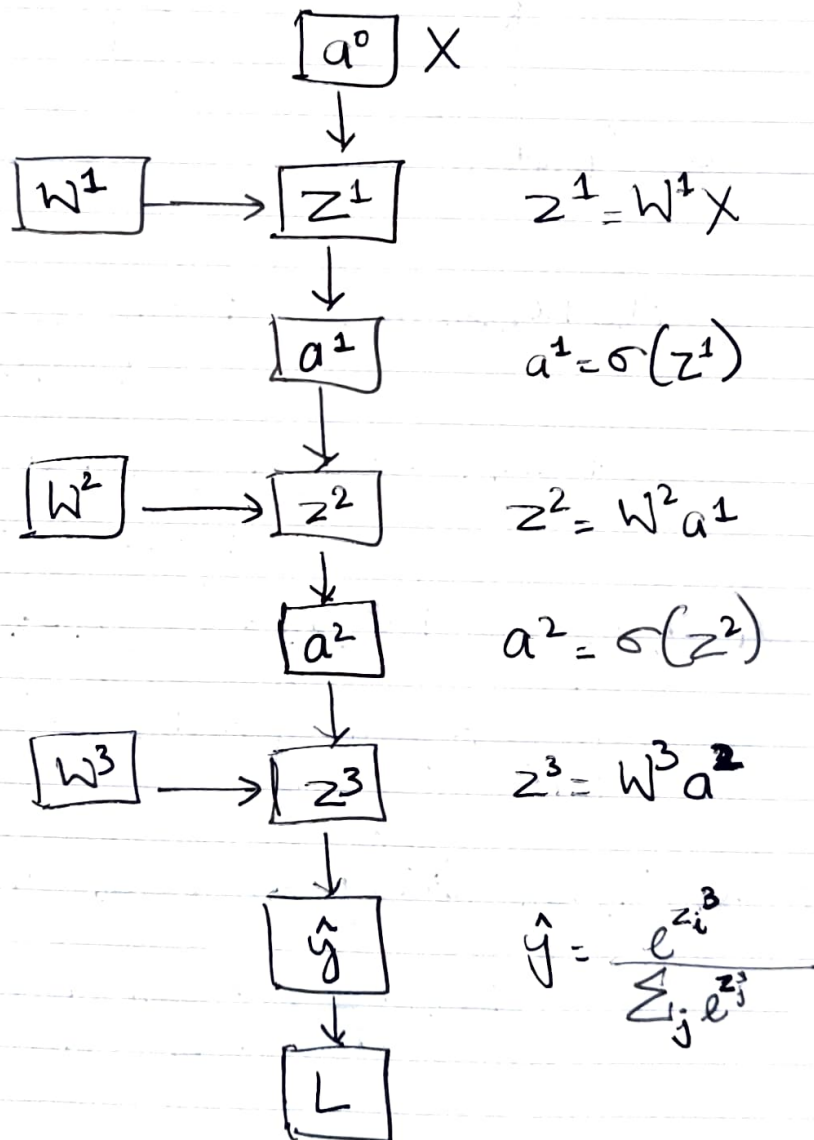 a⁰ X
W¹ z¹ z¹ = W¹X
a¹ a¹ = σ(z¹)
W² z² z² = W² a¹
a² a² = σ(z²)
W³ z³ z³ = W³ a²
ŷ ŷ = e^{z_i^3} / Σ_j e^{z_j^3}
L